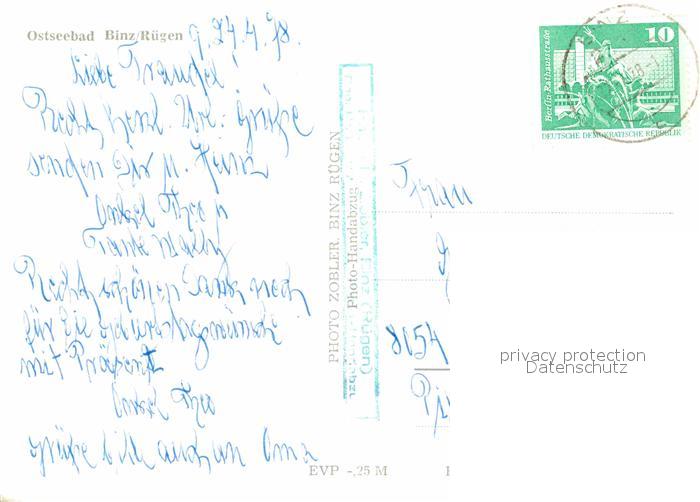 Ostseebad Binz/Rügen 9, 24.4.78.
Liebe Traudel!
Recht herzl. Url. Grüße
senden Dir u. Heinz
Onkel Theo u
Tante Mally
Recht schönen Dank noch
für die Geburtstagswünsche
mit Präsent
Onkel Theo
grüße bitte auch an Oma
PHOTO ZOBLER, BINZ RÜGEN
Photo-Handabzug
EVP -,25 M
10
Berlin-Rathausstraße
DEUTSCHE DEMOKRATISCHE REPUBLIK
BINZ
Frau
8054
privacy protection
Datenschutz